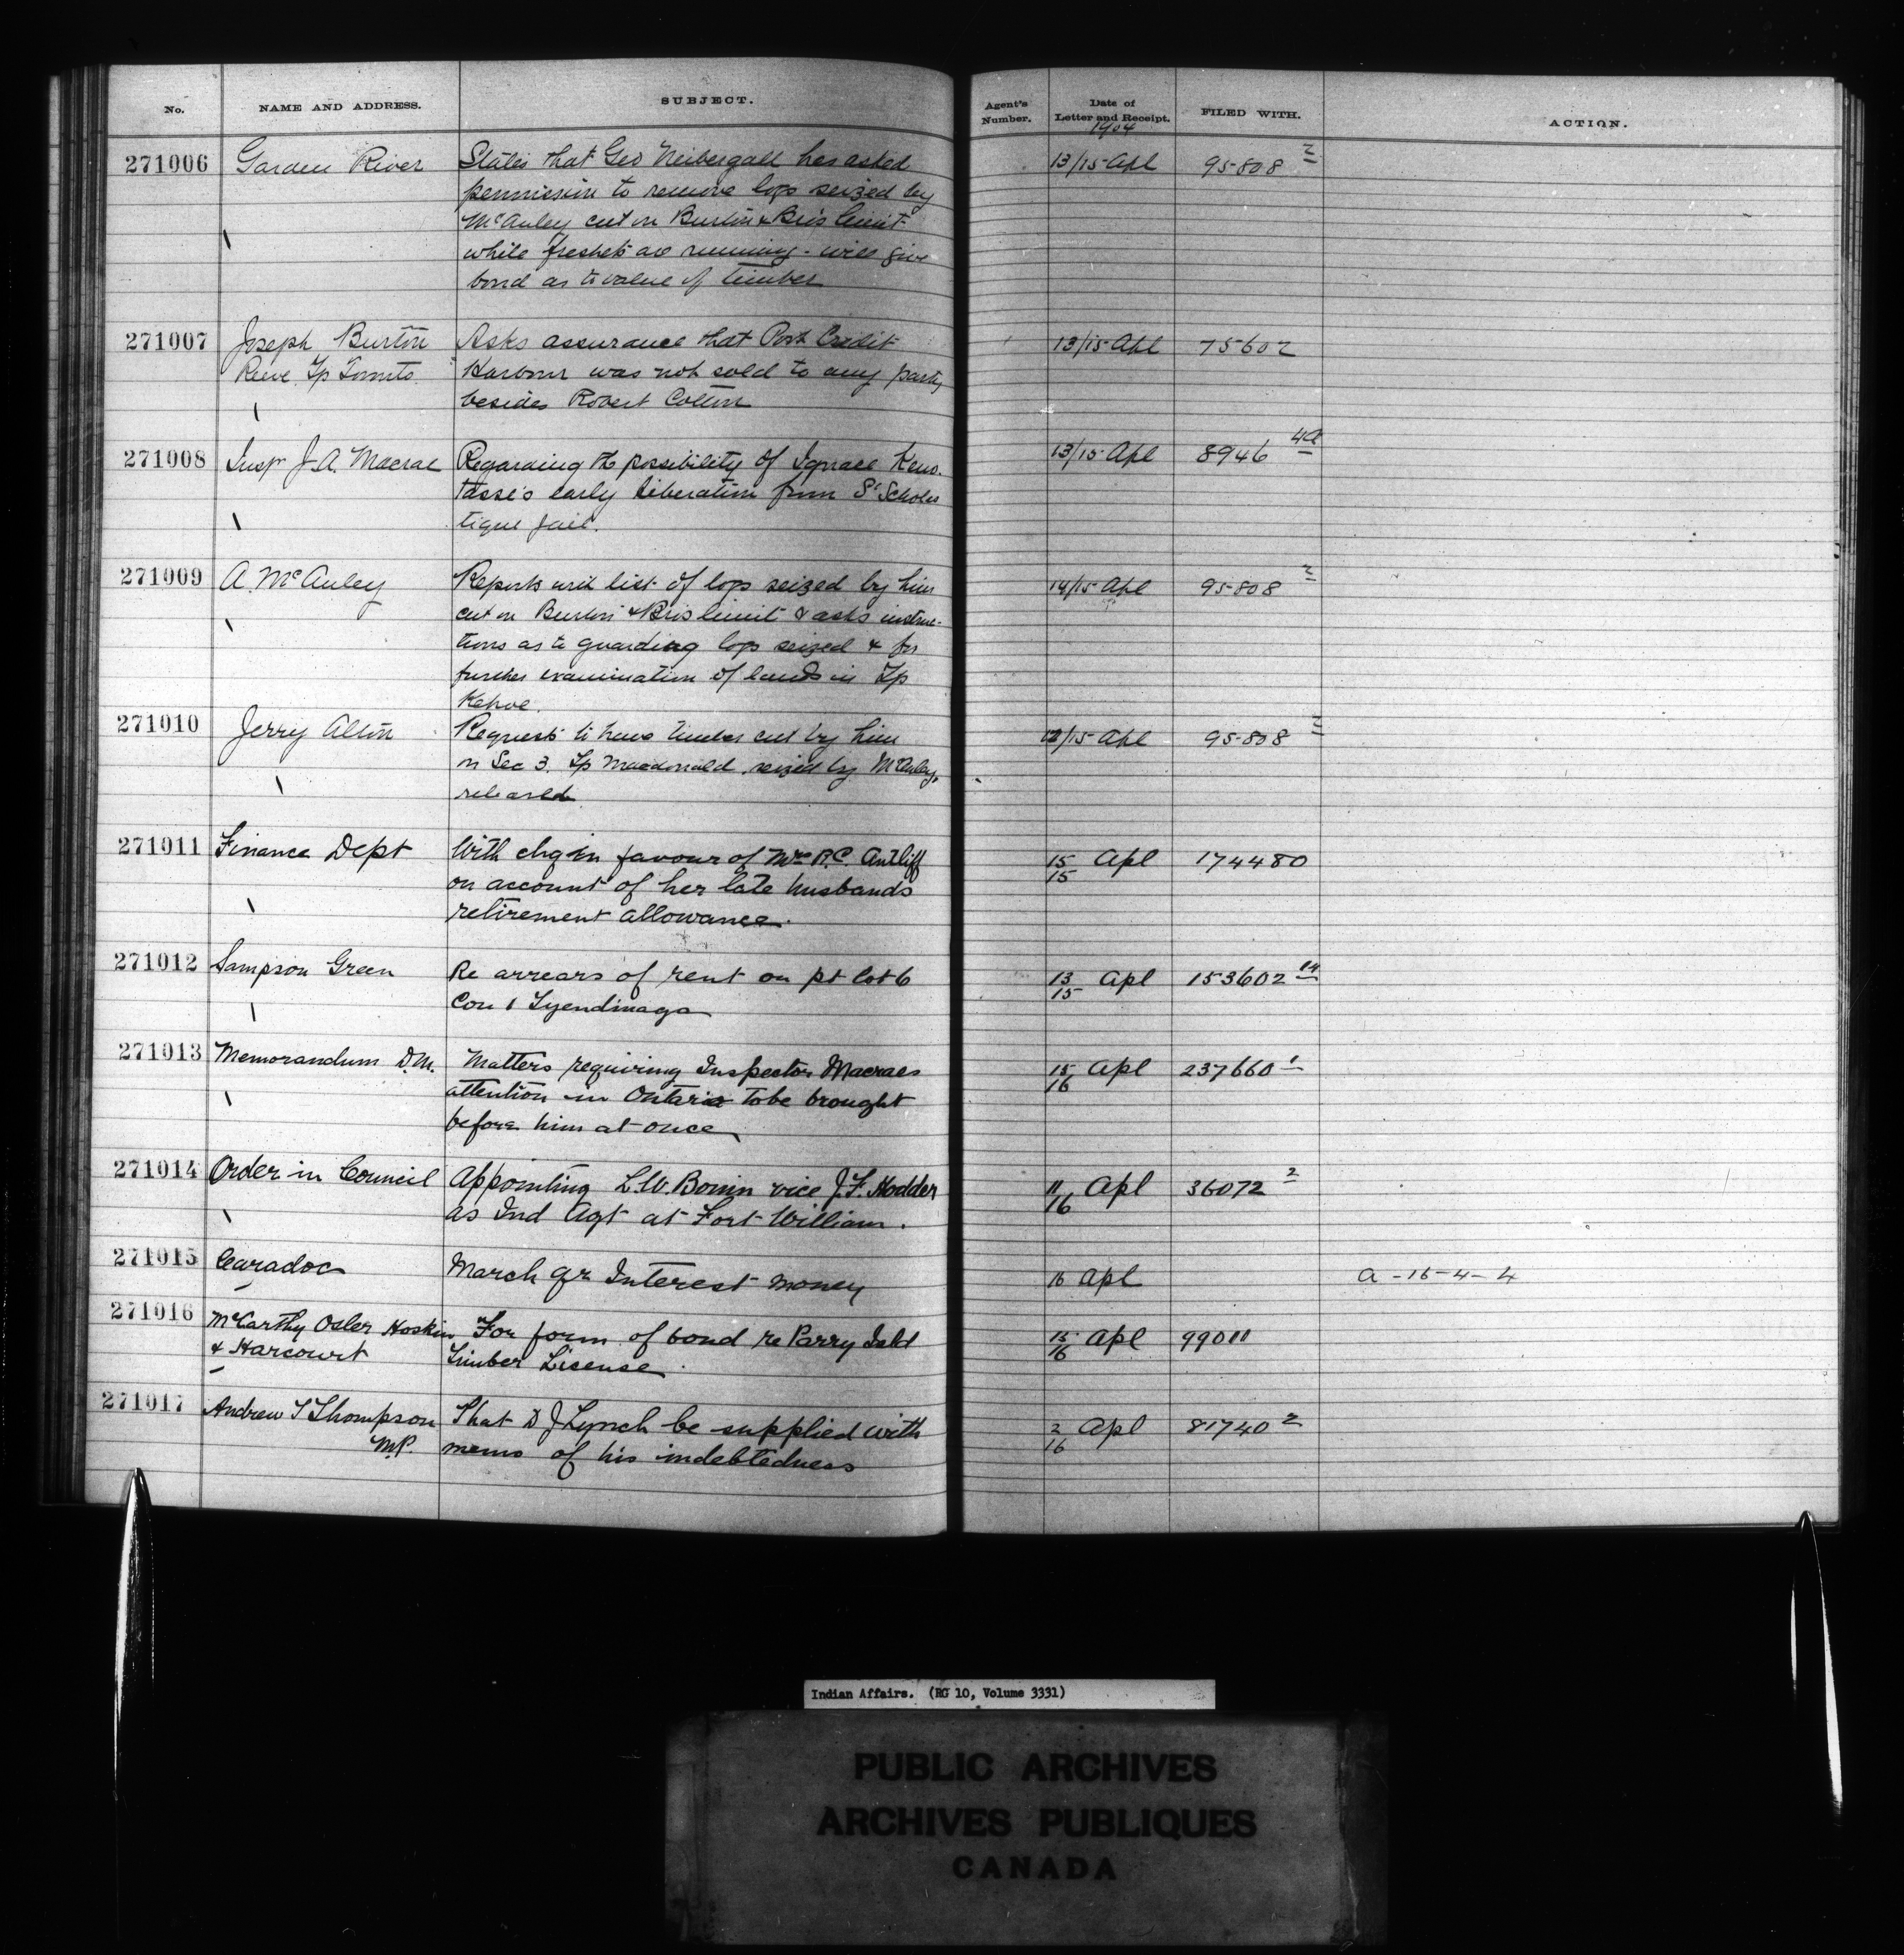 No. NAME AND ADDRESS. SUBJECT. Agent's Number. Date of Letter and Receipt. FILED WITH. ACTION.
1904
271006 Garden River States that Geo Neibergall has asked 13/15 Apl 95808 2
permission to remove logs seized by
McAuley cut on Burton & Bros limit
while freshets are running - will give
bond as to value of timber
271007 Joseph Burton Asks assurance that Port Credit 13/15 Apl 75602
Reeve Tp Toronto Harbour was not sold to any party
besides Robert Cotton
271008 Insp J.A. Macrae Regarding the possibility of Ignace Keno- 13/15 Apl 8946 4A
tasse's early liberation from St Scholas
tique jail.
271009 A. McAuley Reports with list of logs seized by him 14/15 Apl 95808 2
cut on Burton & Bros limit & asks instruc-
tions as to guarding logs seized & for
further examination of lands in Tp
Kehoe.
271010 Jerry Alton Requests to have timber cut by him 12/15 Apl 95808 2
on Sec 3. Tp Macdonald, seized by McAuley,
released
271011 Finance Dept With chq in favour of Mrs R.C. Antliff 15/15 Apl 174480
on account of her late husbands
retirement allowance.
271012 Sampson Green Re arrears of rent on pt lot 6 13/15 Apl 153602 14
Con 1 Tyendinaga
271013 Memorandum D.M. Matters requiring Inspector Macraes 15/16 Apl 237660 1
attention in Ontario to be brought
before him at once
271014 Order in Council Appointing L.W. Bonin vice J.F. Hodder 11/16 Apl 36072 2
as Ind Agt at Fort William.
271015 Caradoc March qr Interest money 16 Apl A-16-4-4
271016 McCarthy Osler Hoskin For form of bond re Parry Isld 15/16 Apl 99011
& Harcourt Timber License
271017 Andrew T Thompson That D J Lynch be supplied with 2/16 Apl 81740 2
M.P. memo of his indebtedness
Indian Affairs. (RG 10, Volume 3331)
PUBLIC ARCHIVES
ARCHIVES PUBLIQUES
CANADA